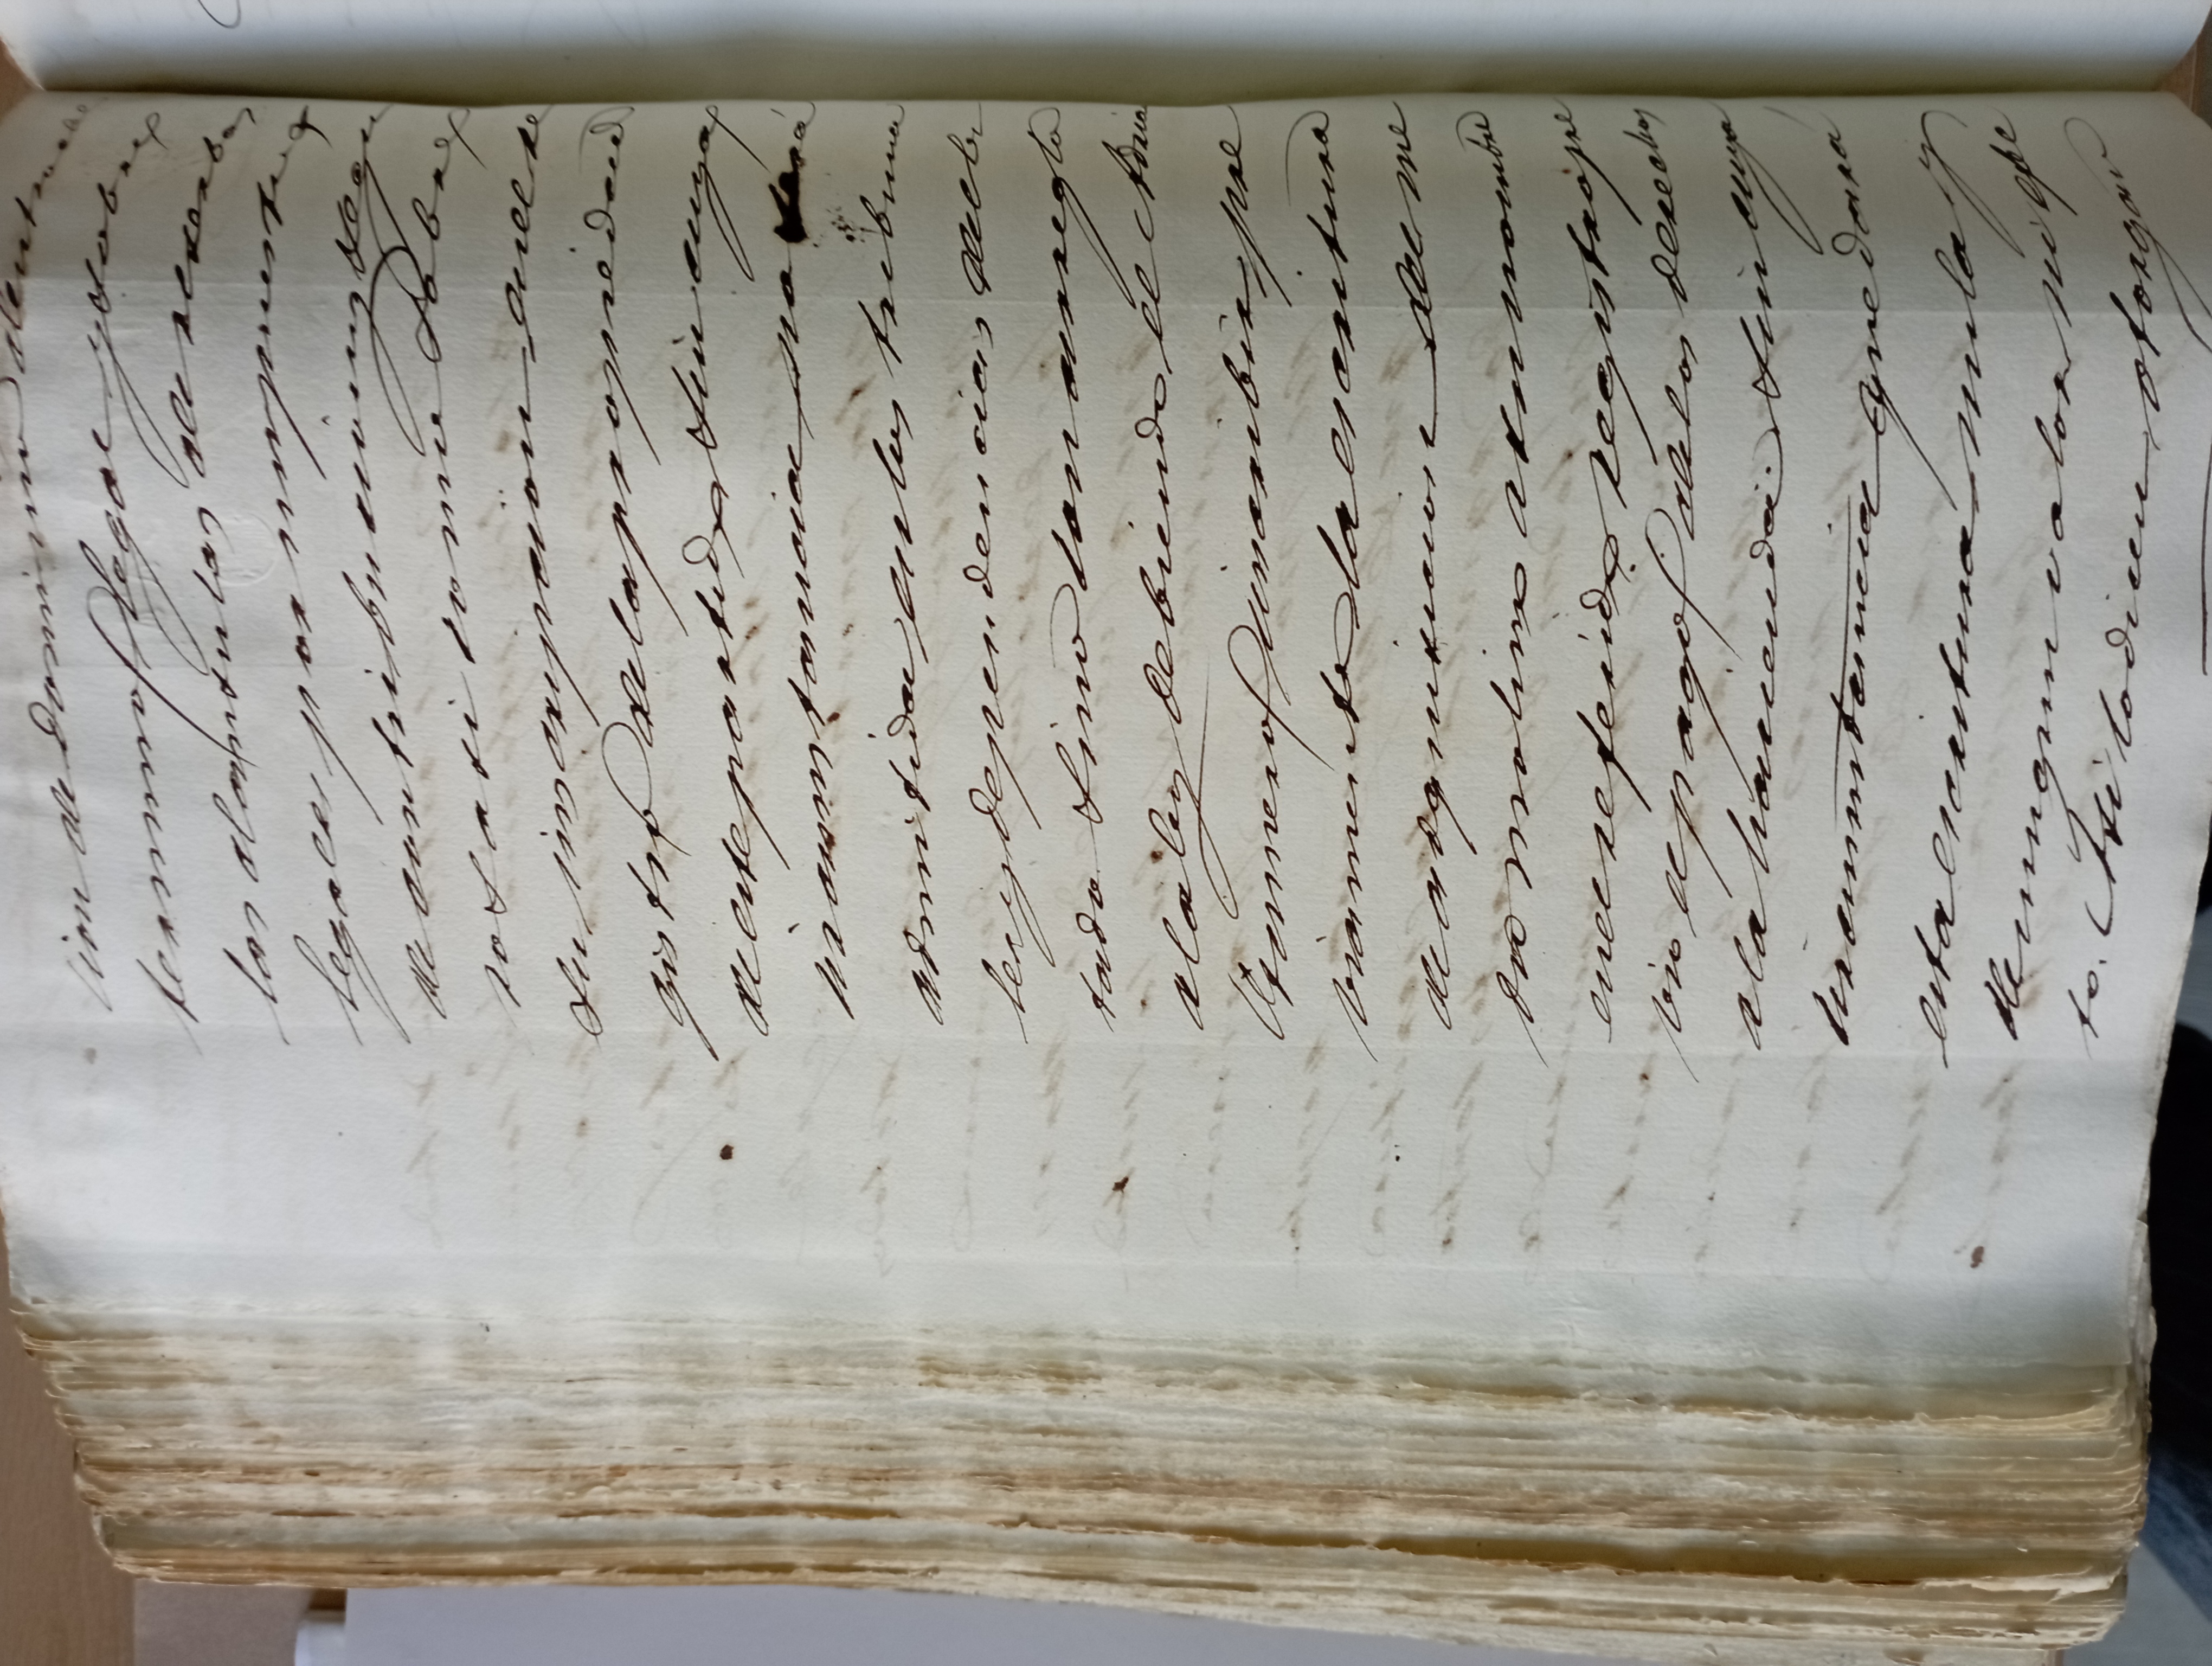 cion de dominio dentro del
termino legal y sobre
las clausulas de reserbas
legales por impuesto
de contribucion y segu
ros asi como sobre
su inscripcion en el re
gistro de la propiedad
de este partido sin cuya
circunstancia no será
admitida en los tribuna
les y dependencias del Es
tado sino con arreglo
a la ley debiendo el
Romero inscribir pre
viamente la escritura
de adquisicion del me
dio molino a su nombre
en el referido registro pre
vio el pago de los derechos
a la hacienda. sin cuya
circunstancia quedara
esta escritura nula y
de ningun valor ni efec
to. Asi lo dicen otorgan